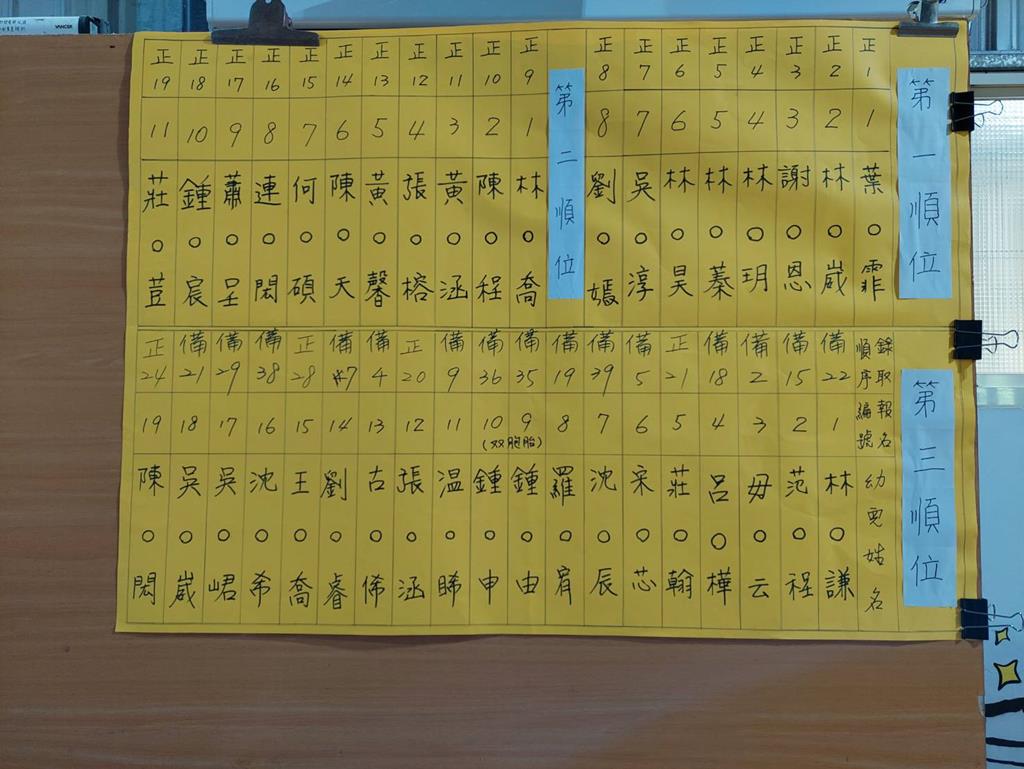 第一順位
正1 1 葉○霏
正2 2 林○崴
正3 3 謝○恩
正4 4 林○玥
正5 5 林○蓁
正6 6 林○昊
正7 7 吳○淳
正8 8 劉○嫣
第二順位
正9 1 林○喬
正10 2 陳○程
正11 3 黃○涵
正12 4 張○榕
正13 5 黃○馨
正14 6 陳○天
正15 7 何○碩
正16 8 連○閎
正17 9 蕭○呈
正18 10 鍾○宸
正19 11 莊○荳
第三順位
錄取順序 報名編號 幼兒姓名
備22 1 林○謙
備15 2 范○程
備2 3 毋○云
備18 4 呂○樺
正21 5 莊○翰
備5 6 宋○芯
備39 7 沈○辰
備19 8 羅○宥
備35 9 鍾○由
備36 10 鍾○申
(双胞胎)
備9 11 温○睎
正20 12 張○涵
備4 13 古○俙
備7 14 劉○睿
正28 15 王○喬
備38 16 沈○希
備29 17 吳○峮
備21 18 吳○崴
正24 19 陳○閎